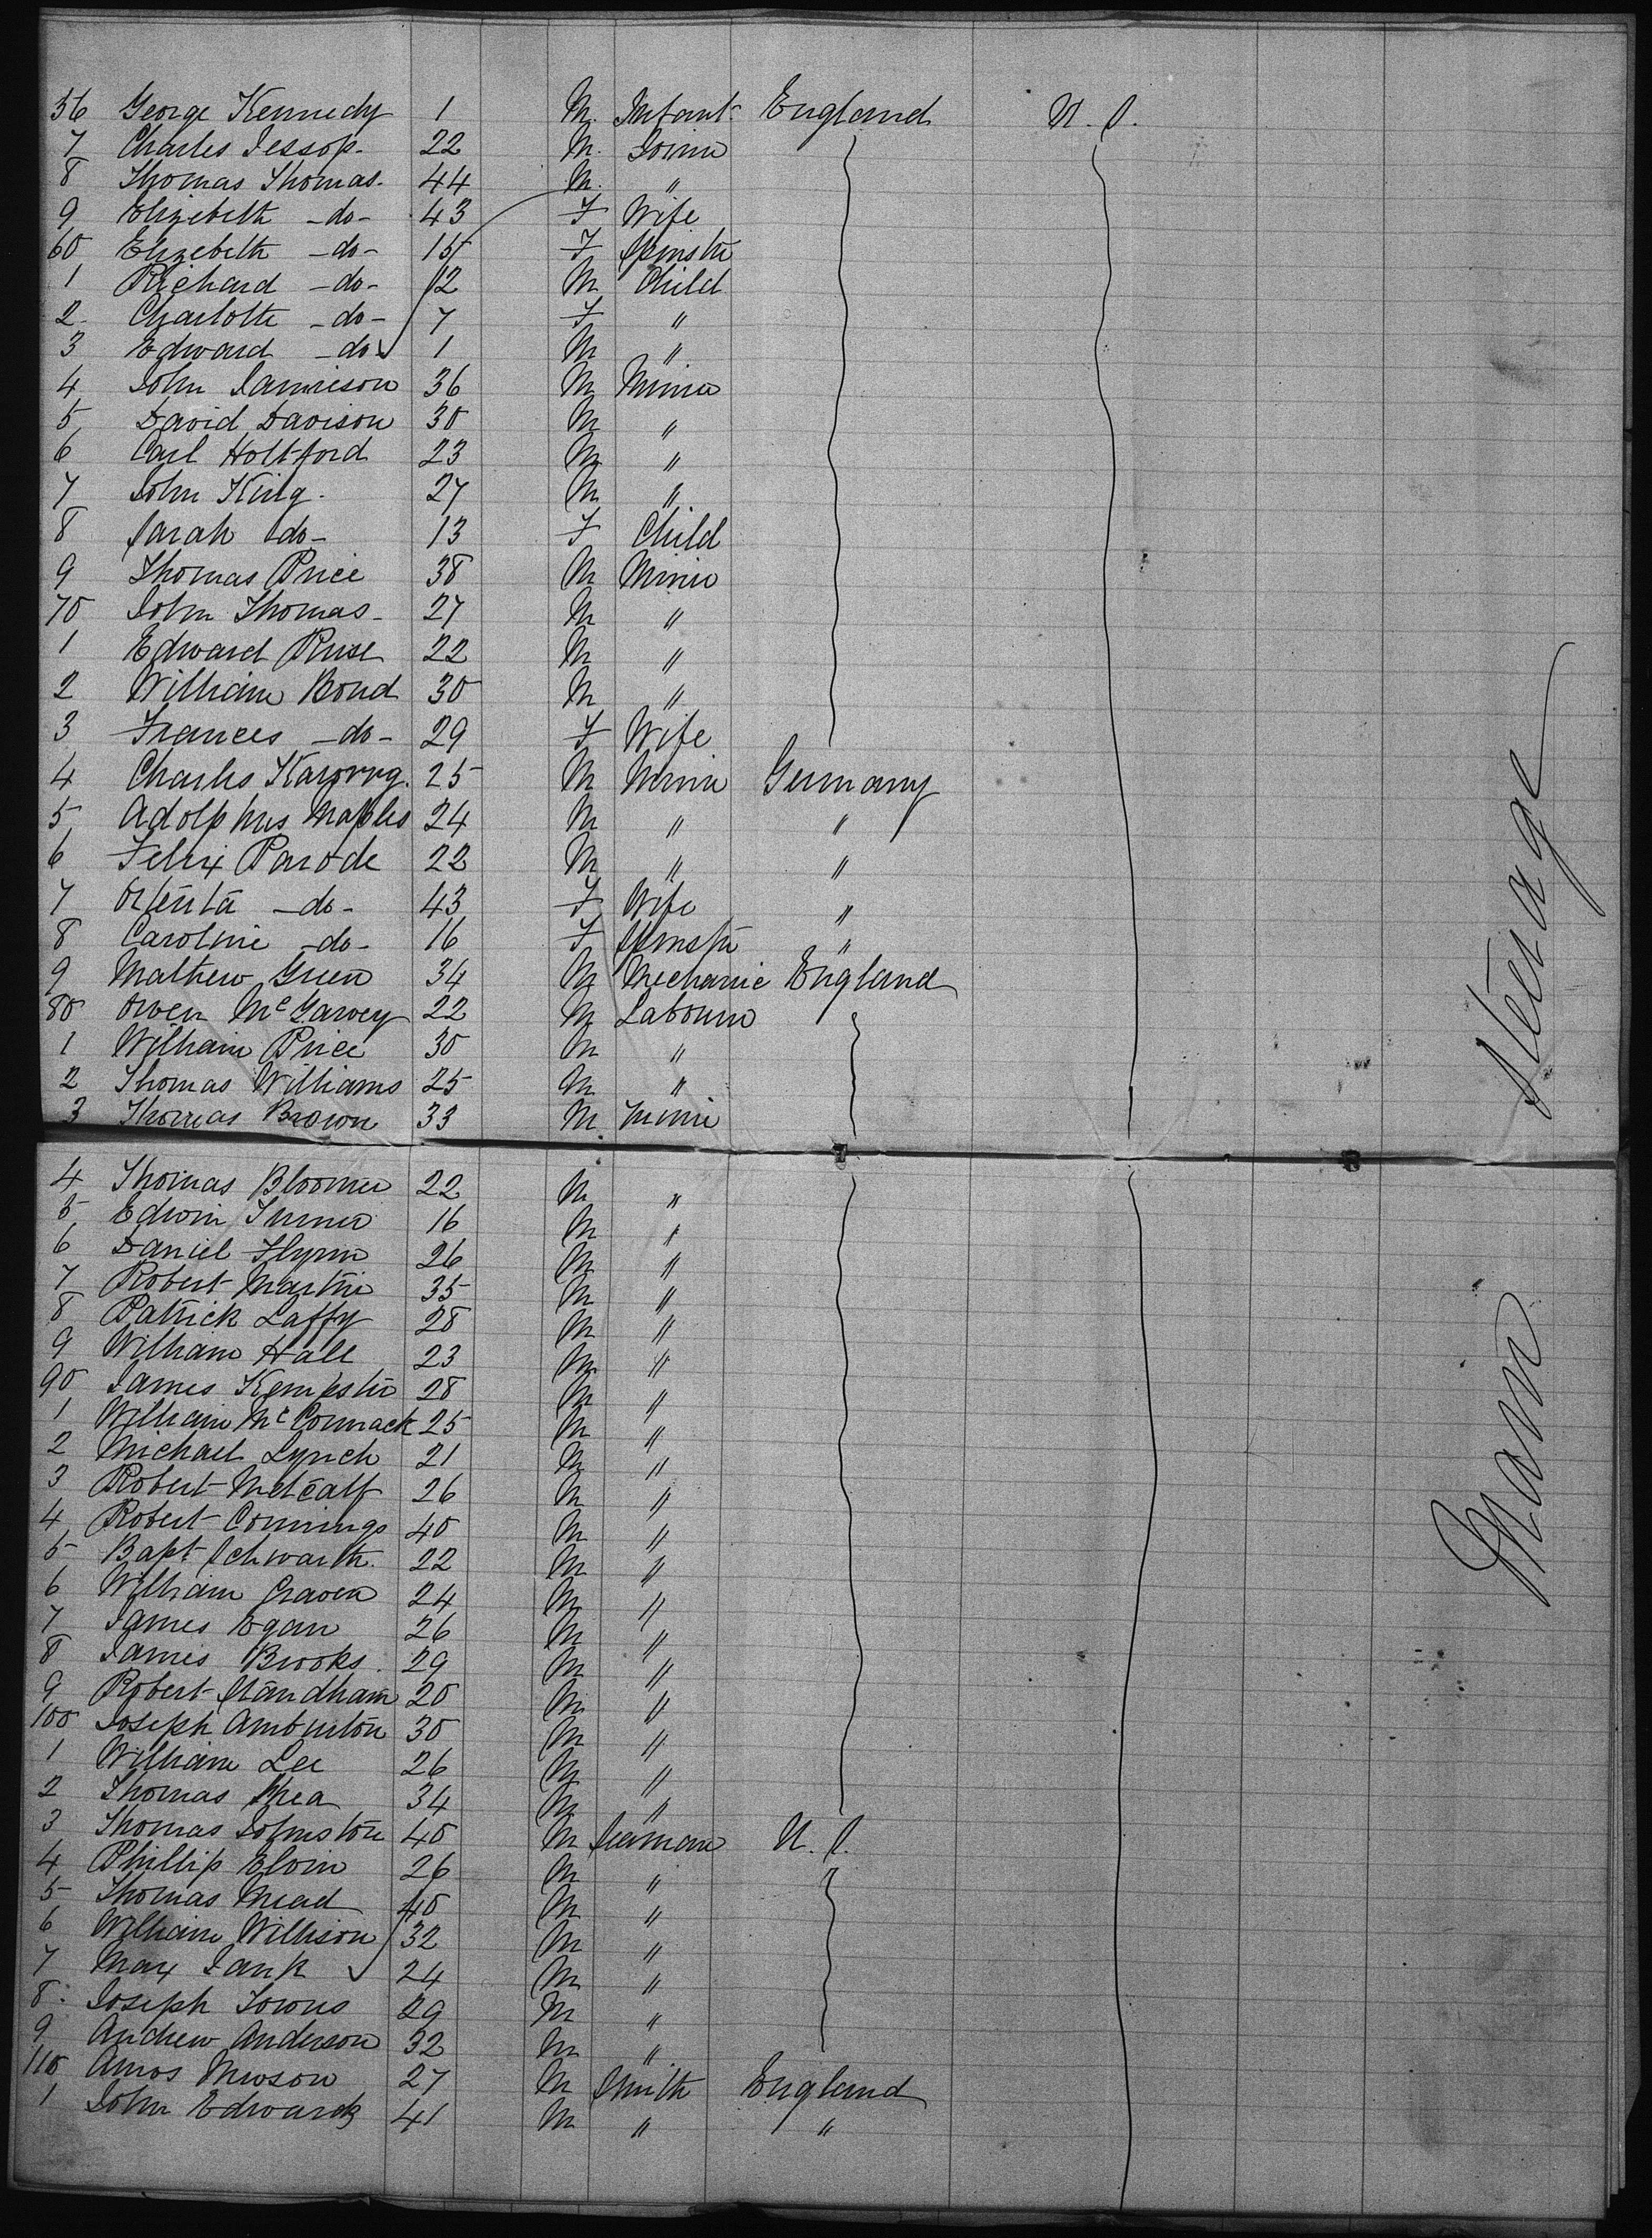 56 George Kennedy 1 M. Infant England U. S.
7 Charles Jessop. 22 M. Joiner
8 Thomas Thomas. 44 M. "
9 Elizebeth -do- 43 F Wife
60 Elizebeth -do- 15 F Spinster
1 Richard -do- 12 M Child
2 Charlotte -do- 7 F "
3 Edward -do- 1 M "
4 John Jamieson 36 M Miner
5 David Davison 30 M "
6 Carl Holtford 23 M "
7 John King. 27 M "
8 Sarah do- 13 F Child
9 Thomas Price 38 M Miner
70 John Thomas- 27 M "
1 Edward Ruse 22 M "
2 William Bond 30 M "
3 Frances -do- 29 F Wife
4 Charles 25 M Miner Germany
5 Adolphus Maples 24 M " "
6 Felix Parode 22 M " "
7 -do- 43 F Wife "
8 Caroline -do- 16 F Spinster "
9 Mathew Green 34 M Mechanic England
80 Owen McGarvey 22 M Labourer
1 William Price 30 M "
2 Thomas Williams 25 M "
3 Thomas Brown 33 M. Miner
4 Thomas Bloomer 22 M "
5 Edwin Turner 16 M "
6 Daniel Flynn 26 M "
7 Robert Martin 35 M "
8 Patrick Laffy 28 M "
9 William Hall 23 M "
90 James Kempster 28 M "
1 William McCormack 25 M "
2 Michael Lynch 21 M "
3 Robert Metcalf 26 M "
4 Robert Connings 40 M "
5 Bapt Schwarth. 22 M "
6 William Craven 24 M "
7 James Egan 26 M "
8 James Brooks. 29 M "
9 Robert Standham 20 M "
100 Joseph 30 M "
1 William Lee 26 M "
2 Thomas Shea 34 M "
3 Thomas Johnston 40 M Seaman U. S.
4 Phillip Elvin 26 M "
5 Thomas Mead 40 M "
6 William Willison 32 M "
7 Max Jank 24 M "
8. Joseph Towns 29 M "
9 Andrew Anderson 32 M "
110 Amos Mewson 27 M Smith England
1 John Edwards 41 M " "
Steerage
Main